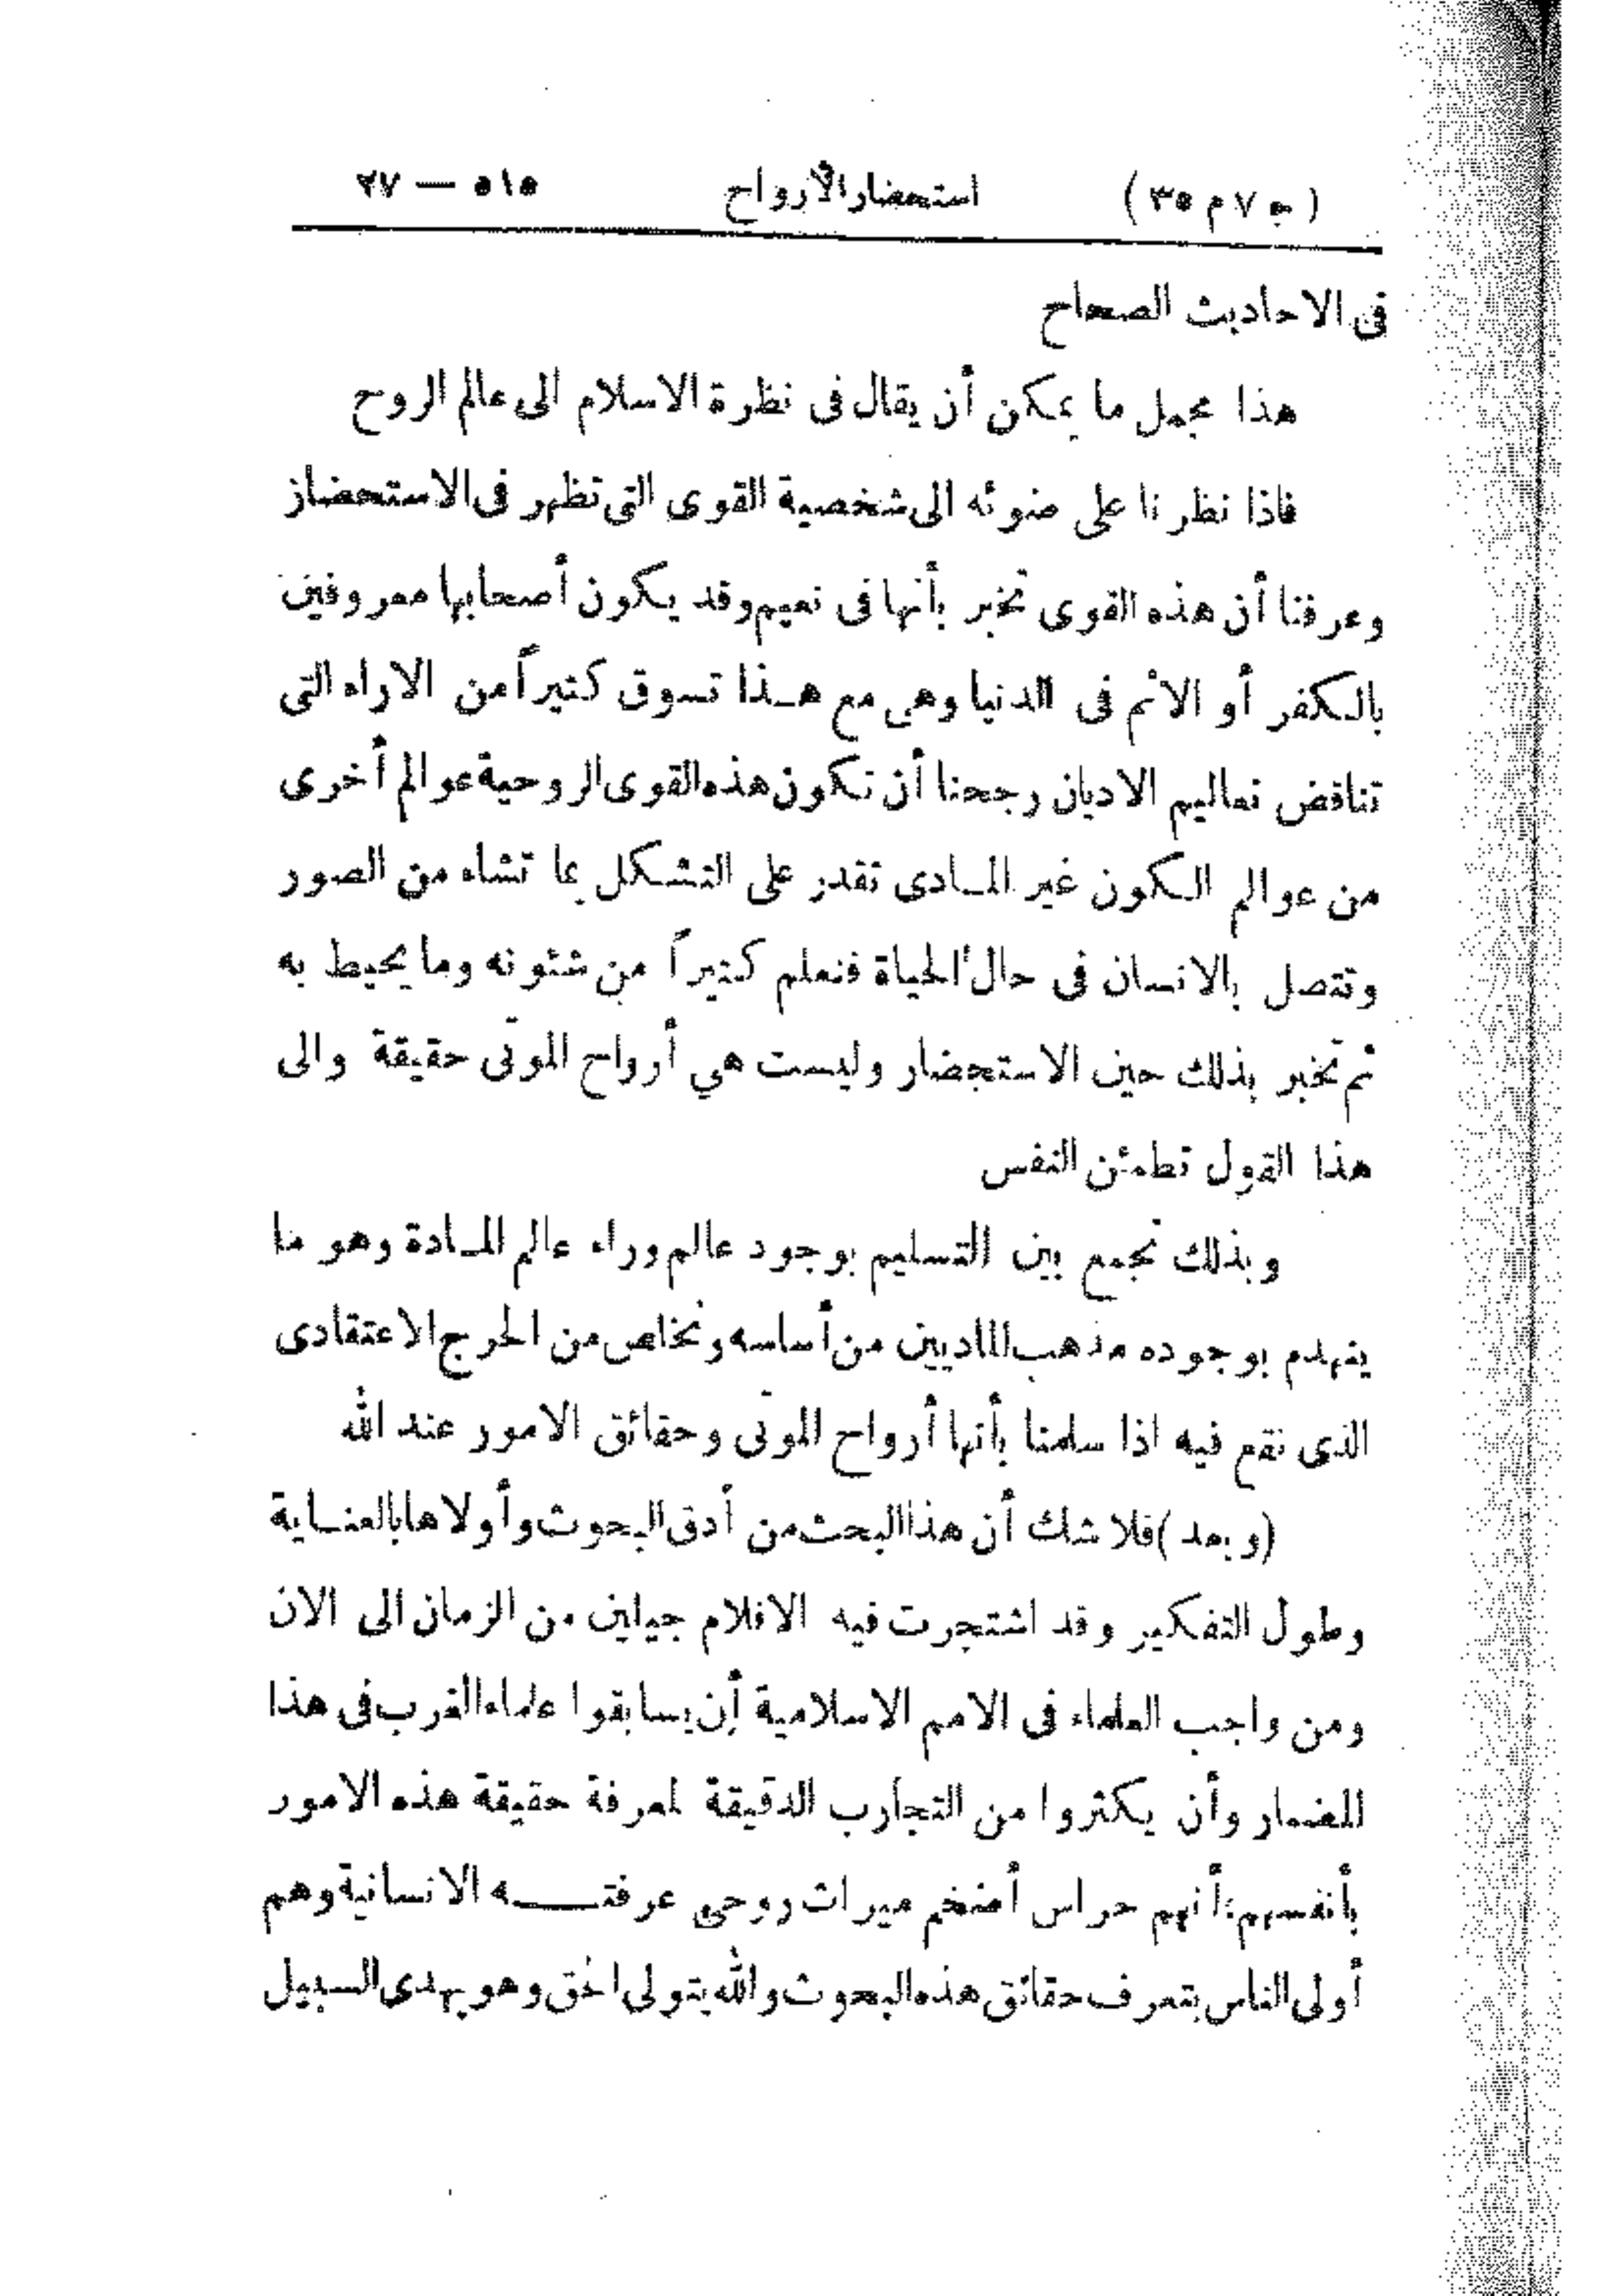 ( ج ٧ م ٣٥ ) استحضار الأرواح ٥١٥ — ٢٧
فى الاحاديث الصحاح
هذا مجمل ما يمكن أن يقال فى نظرة الاسلام الى عالم الروح
فاذا نظرنا على ضوئه الى شخصية القوى التى تظهر فى الاستحضار
وعرفنا أن هذه القوى تخبر بأنها فى نعيم وقد يكون أصحابها معروفين
بالكفر أو الاثم فى الدنيا وهى مع هـذا تسوق كثيراً من الاراء التى
تناقض تعاليم الاديان رجحنا أن تكون هذه القوى الروحية عوالم أخرى
من عوالم الكون غير المـادى تقدر على التشكل بما تشاء من الصور
وتتصل بالانسان فى حال الحياة فتعلم كثيراً من شئونه وما يحيط به
ثم تخبر بذلك حين الاستحضار وليست هي أرواح الموتى حقيقة والى
هذا القول تطمئن النفس
وبذلك نجمع بين التسليم بوجود عالم وراء عالم المـادة وهو ما
ينهدم بوجوده مذهب الماديين من أساسه ونخلص من الحرج الاعتقادى
الذى نقع فيه اذا سلمنا بأنها أرواح الموتى وحقائق الامور عند الله
(وبعد) فلا شك أن هذا البحث من أدق البحوث وأولاها بالعنـاية
وطول التفكير وقد اشتجرت فيه الاقلام جيلين من الزمان الى الان
ومن واجب العلماء فى الامم الاسلامية أن يسابقوا علماء الغرب فى هذا
المضمار وأن يكثروا من التجارب الدقيقة لمعرفة حقيقة هذه الامور
بأنفسهم؛ أنهم حراس أضخم ميراث روحى عرفتـــه الانسانية وهم
أولى الناس بتعرف حقائق هذه البحوث والله يتولى الحق وهو يهدى السبيل